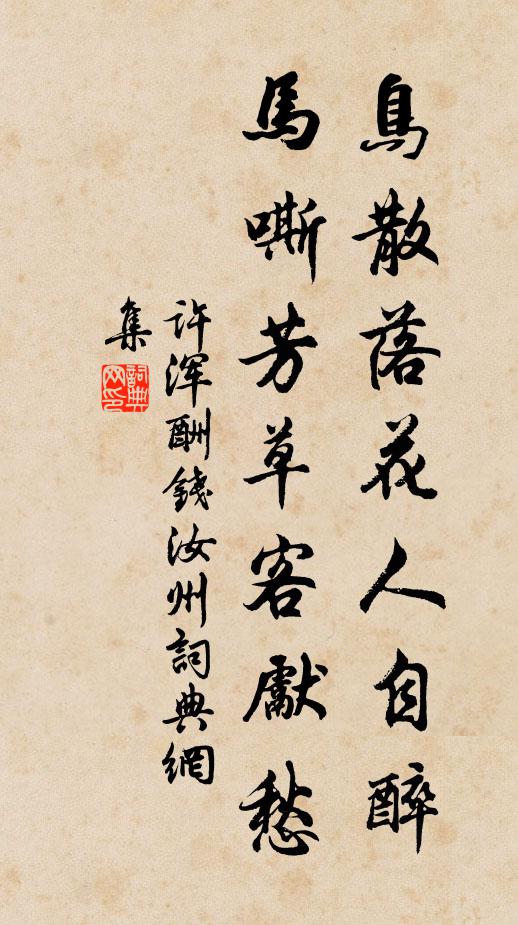 鳥散落花人自醉
馬嘶芳草客獻愁
许浑酬錢汝州詞典網
集
詞典
网印